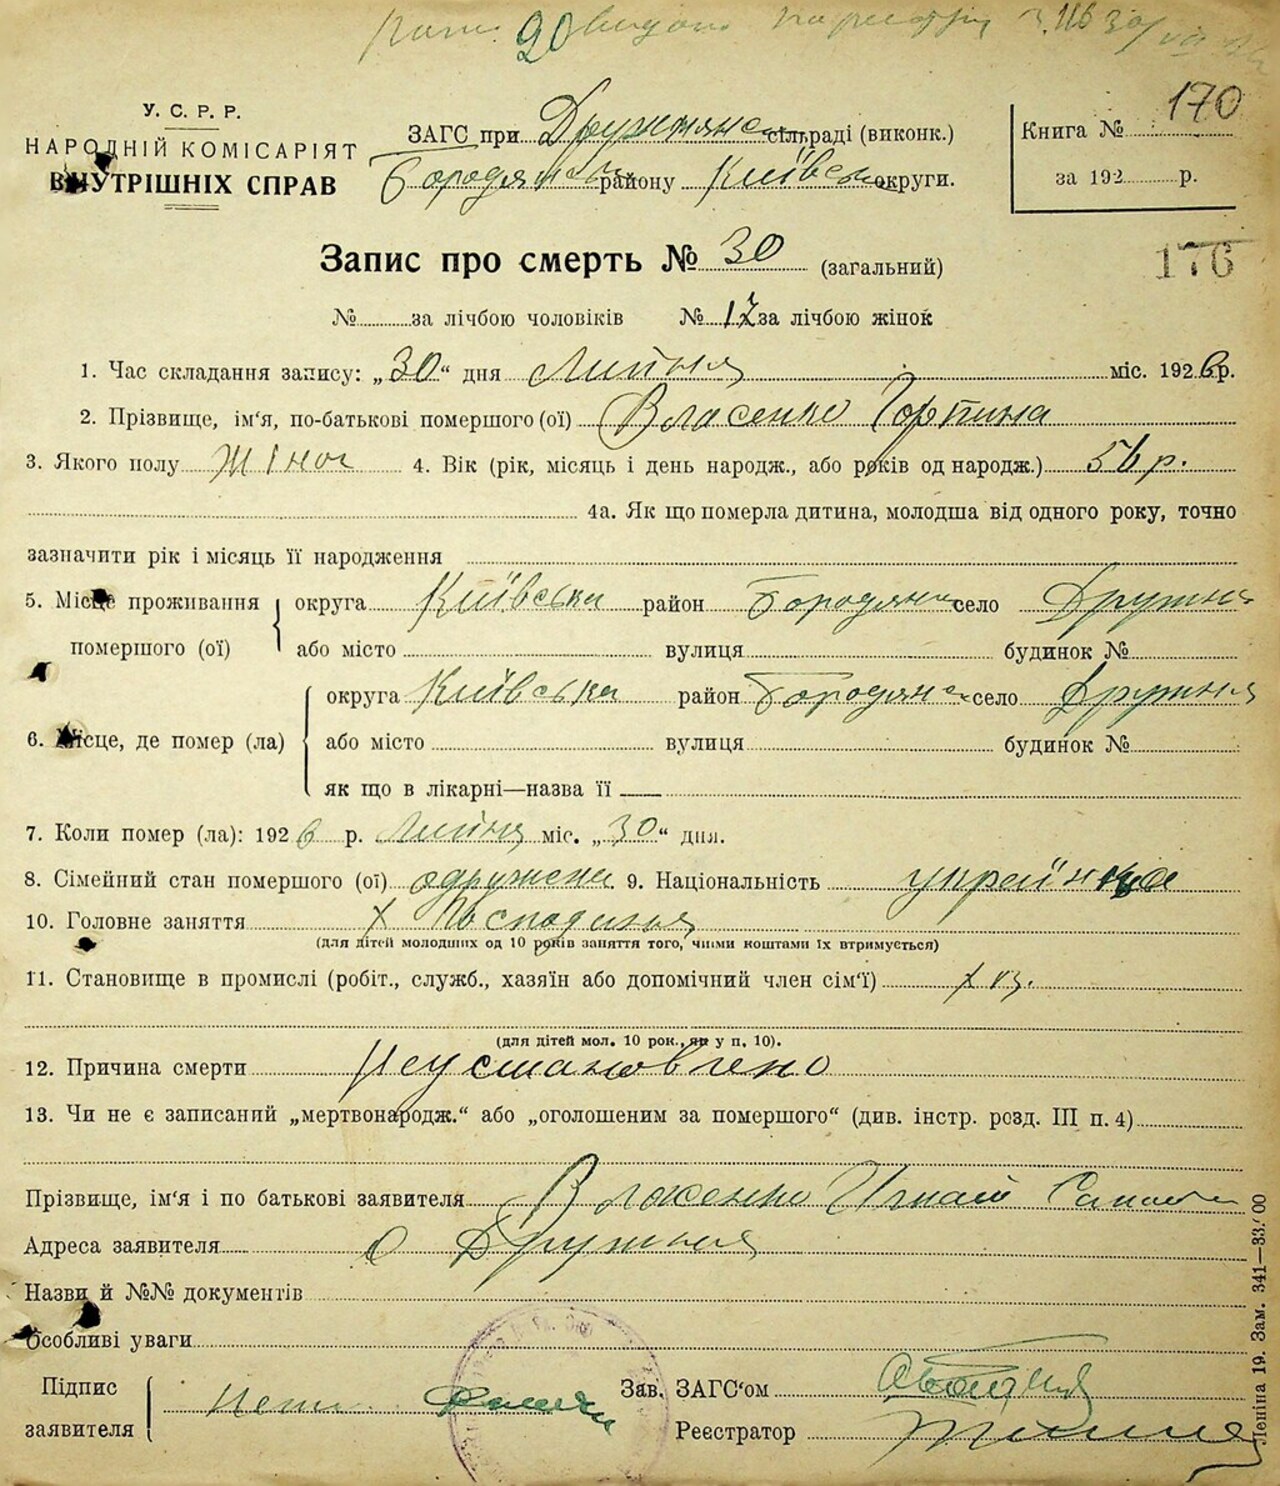 У. С. Р. Р.
НАРОДНІЙ КОМІСАРІЯТ
ВНУТРІШНІХ СПРАВ
ЗАГС при Дружнянс сільраді (виконк.)
Бородянськ району Київськ округи.
Книга № 170
за 192 р.
Запис про смерть № 30 (загальний)
176
№ за лічбою чоловіків № 17 за лічбою жінок
1. Час складання запису: „30“ дня Липня міс. 1926 р.
2. Прізвище, ім‘я, по-батькові помершого (ої) Власенко Горпина
3. Якого полу жіноч 4. Вік (рік, місяць і день народж., або років од народж.) 56 р.
4а. Як що померла дитина, молодша від одного року, точно
зазначити рік і місяць її народження
5. Місце проживання помершого (ої) округа Київська район Бородянськ село Дружня
або місто вулиця будинок №
6. Місце, де помер (ла) округа Київська район Бородянськ село Дружня
або місто вулиця будинок №
як що в лікарні—назва її
7. Коли помер (ла): 1926 р. Липня міс. „30“ дня.
8. Сімейний стан помершого (ої) одружена 9. Національність українка
10. Головне заняття х Господиня
(для дітей молодших од 10 років заняття того, чиїми коштами їх втримується)
11. Становище в промислі (робіт., служб., хазяїн або допомічний член сім‘ї) хаз.
(для дітей мол. 10 рок., як у п. 10).
12. Причина смерти Неустановлено
13. Чи не є записаний „мертвонародж.“ або „оголошеним за помершого“ (див. інстр. розд. III п. 4)
Прізвище, ім‘я і по батькові заявителя Власенко Игнат
Адреса заявителя с Дружня
Назви й №№ документів
Особливі уваги
Підпис заявителя
Зав. ЗАГС‘ом
Реєстратор
Леніна 19. Зам. 341—33.000